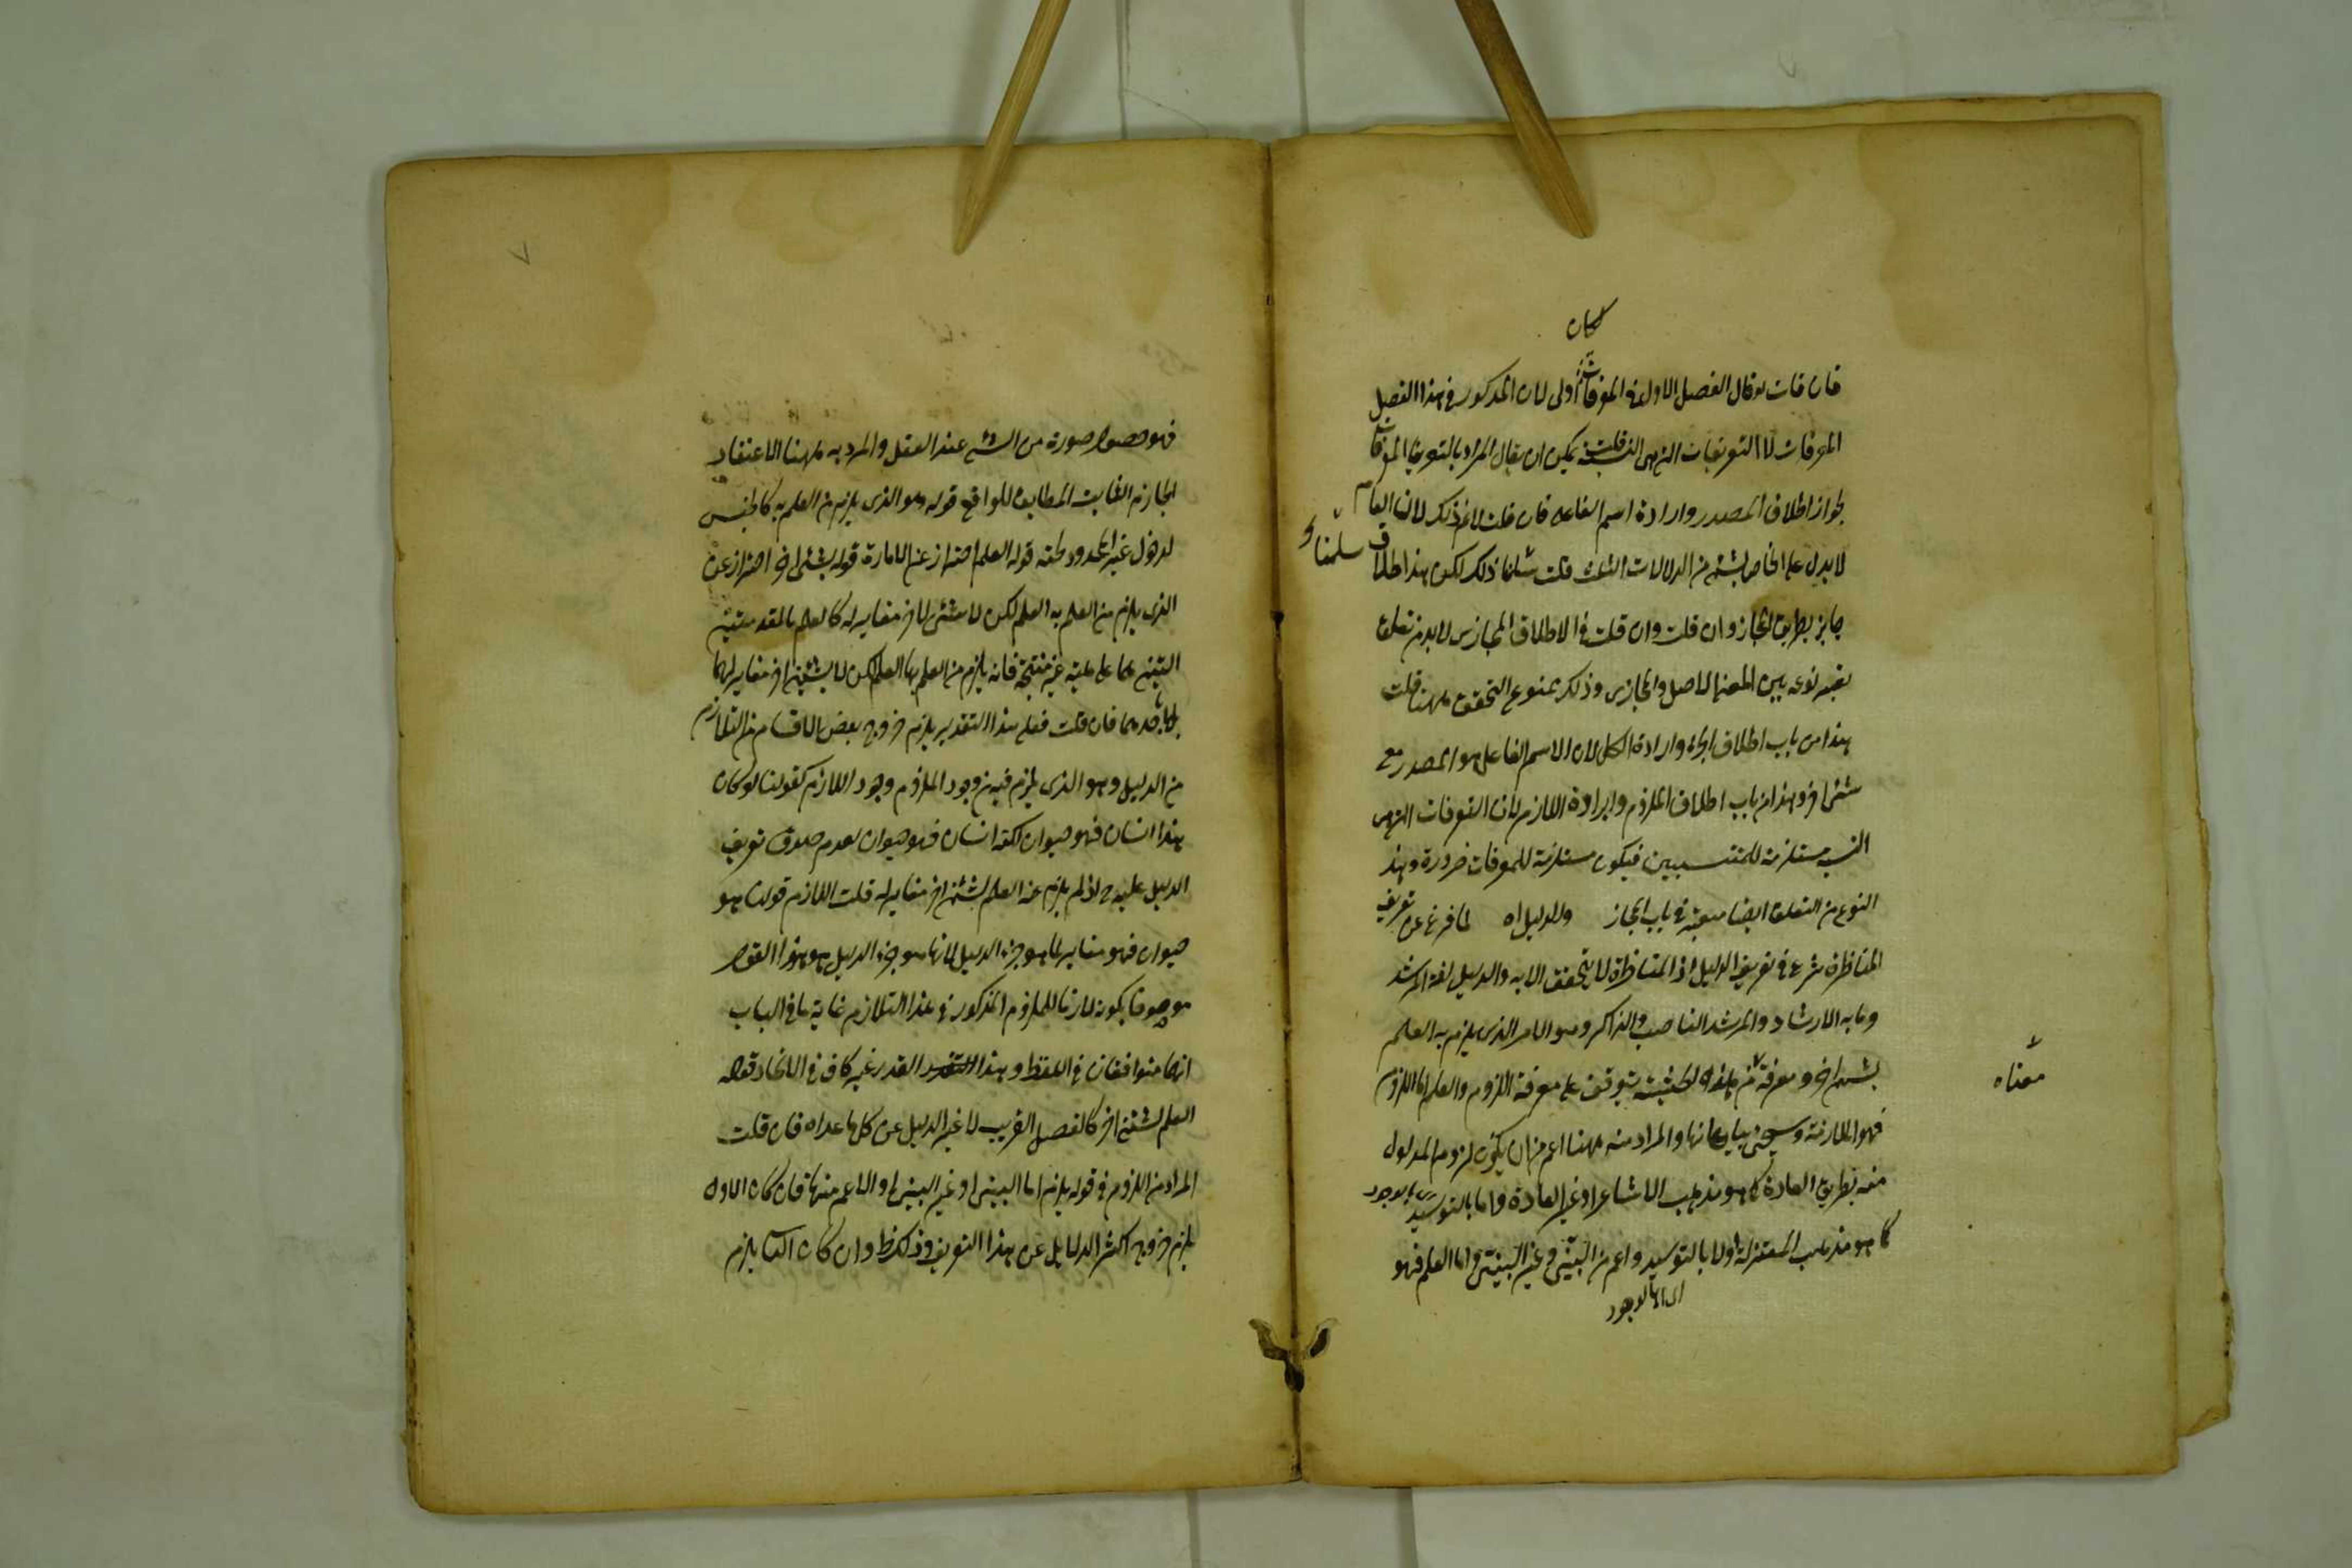 كان
فان قلت لو قال الفصل الاول في المعرفات اولى لان المذكور في هذا الفصل
المعرفات لا التعريفات التي هي النسب قلت يمكن ان يقال المراد بالتعريفات المعرفات
لجواز اطلاق المصدر وارادة اسم الفاعل فان قلت لا نم ذلك لان العام
لا يدل على الخاص بشئ من الدلالات الثلث قلت سلمنا ذلك لكن هذا اطلاق
سلمنا
جايز بطريق المجاز وان قلت وان قلت في الاطلاق المجازي لا بد من تعلق
نوعه بين المعنى الاصلي والمجازي وذلك ممنوع التحقق ههنا قلت
هذا من باب اطلاق الجزء وارادة الكل لان الاسم الفاعل هو المصدر مع
شئ اخر وهذا من باب اطلاق الملزوم وارادة اللازم لان التعريفات التي هي
النسب مستلزمة للمنتسبين فيكون مستلزمة للمعرفات ضرورة وهذا
النوع من التعلق ايضا معتبر في باب المجاز والدليل اه لما فرغ عن تعريف
المناظرة شرع في تعريف الدليل اذ المناظرة لا يتحقق الا به والدليل لغة المرشد
وما به الارشاد والمرشد الناصب والذاكر وهو الامر الذي يلزم به العلم
بشئ اخر ومعرفة يتوقف على معرفة اللزوم والعلم اما اللزوم
معناه
فهو الملازمة وسيجئ بيان معانها والمراد منه ههنا اعم من ان يكون لزوم المدلول
منه بطريق العادة كما هو مذهب الاشاعرة او غير العادة واما بالتوليد
كما هو مذهب المعتزلة اولا بالتوليد واعم من البين وغير البين واما العلم فهو
فهو حصول صورة من الشئ عند العقل والمراد به ههنا الاعتقاد
الجازم الثابت المطابق للواقع قوله هو الذي يلزم من العلم به كالجنس
لدخول غير المحدود تحته قوله العلم احتراز عن الامارة قوله بشئ اخر احتراز عن
الذي يلزم من العلم به العلم لكن لا بشئ اخر مغاير له كالعلم بالمقدمتين
اللتين هما على هيئة غير منتجة فانه يلزم من العلم بها العلم لكن لا بشئ اخر مغاير لهما
فان قلت فعلى هذا التقدير يلزم خروج بعض الاقسام من التلازم
من الدليل وهو الذي يلزم فيه من وجود الملزوم وجود اللازم كقولنا لو كان
هذا انسان فهو حيوان لكنه انسان فهو حيوان لعدم صدق تعريف
الدليل عليه ح اذ لم يلزم عنه العلم بشئ اخر مغاير له قلت اللازم قولنا هو
حيوان فهو مغاير لما هو جزء الدليل لانها هو جزء الدليل هو هذا القول
موصوفا بكونه لازما للملزوم المذكور في هذا التلازم غاية ما في الباب
انهما متوافقان في اللفظ وهذا القدر غير كاف في الاتحاد قوله
العلم بشئ اخر كالفصل القريب لا غير الدليل عن كل ما عداه فان قلت
المراد من اللزوم في قوله يلزم اما البين او غير البين او الاعم منها فان كان الاول
يلزم خروج اكثر الدلايل عن هذا التعريف وذلك وان كان يلزم